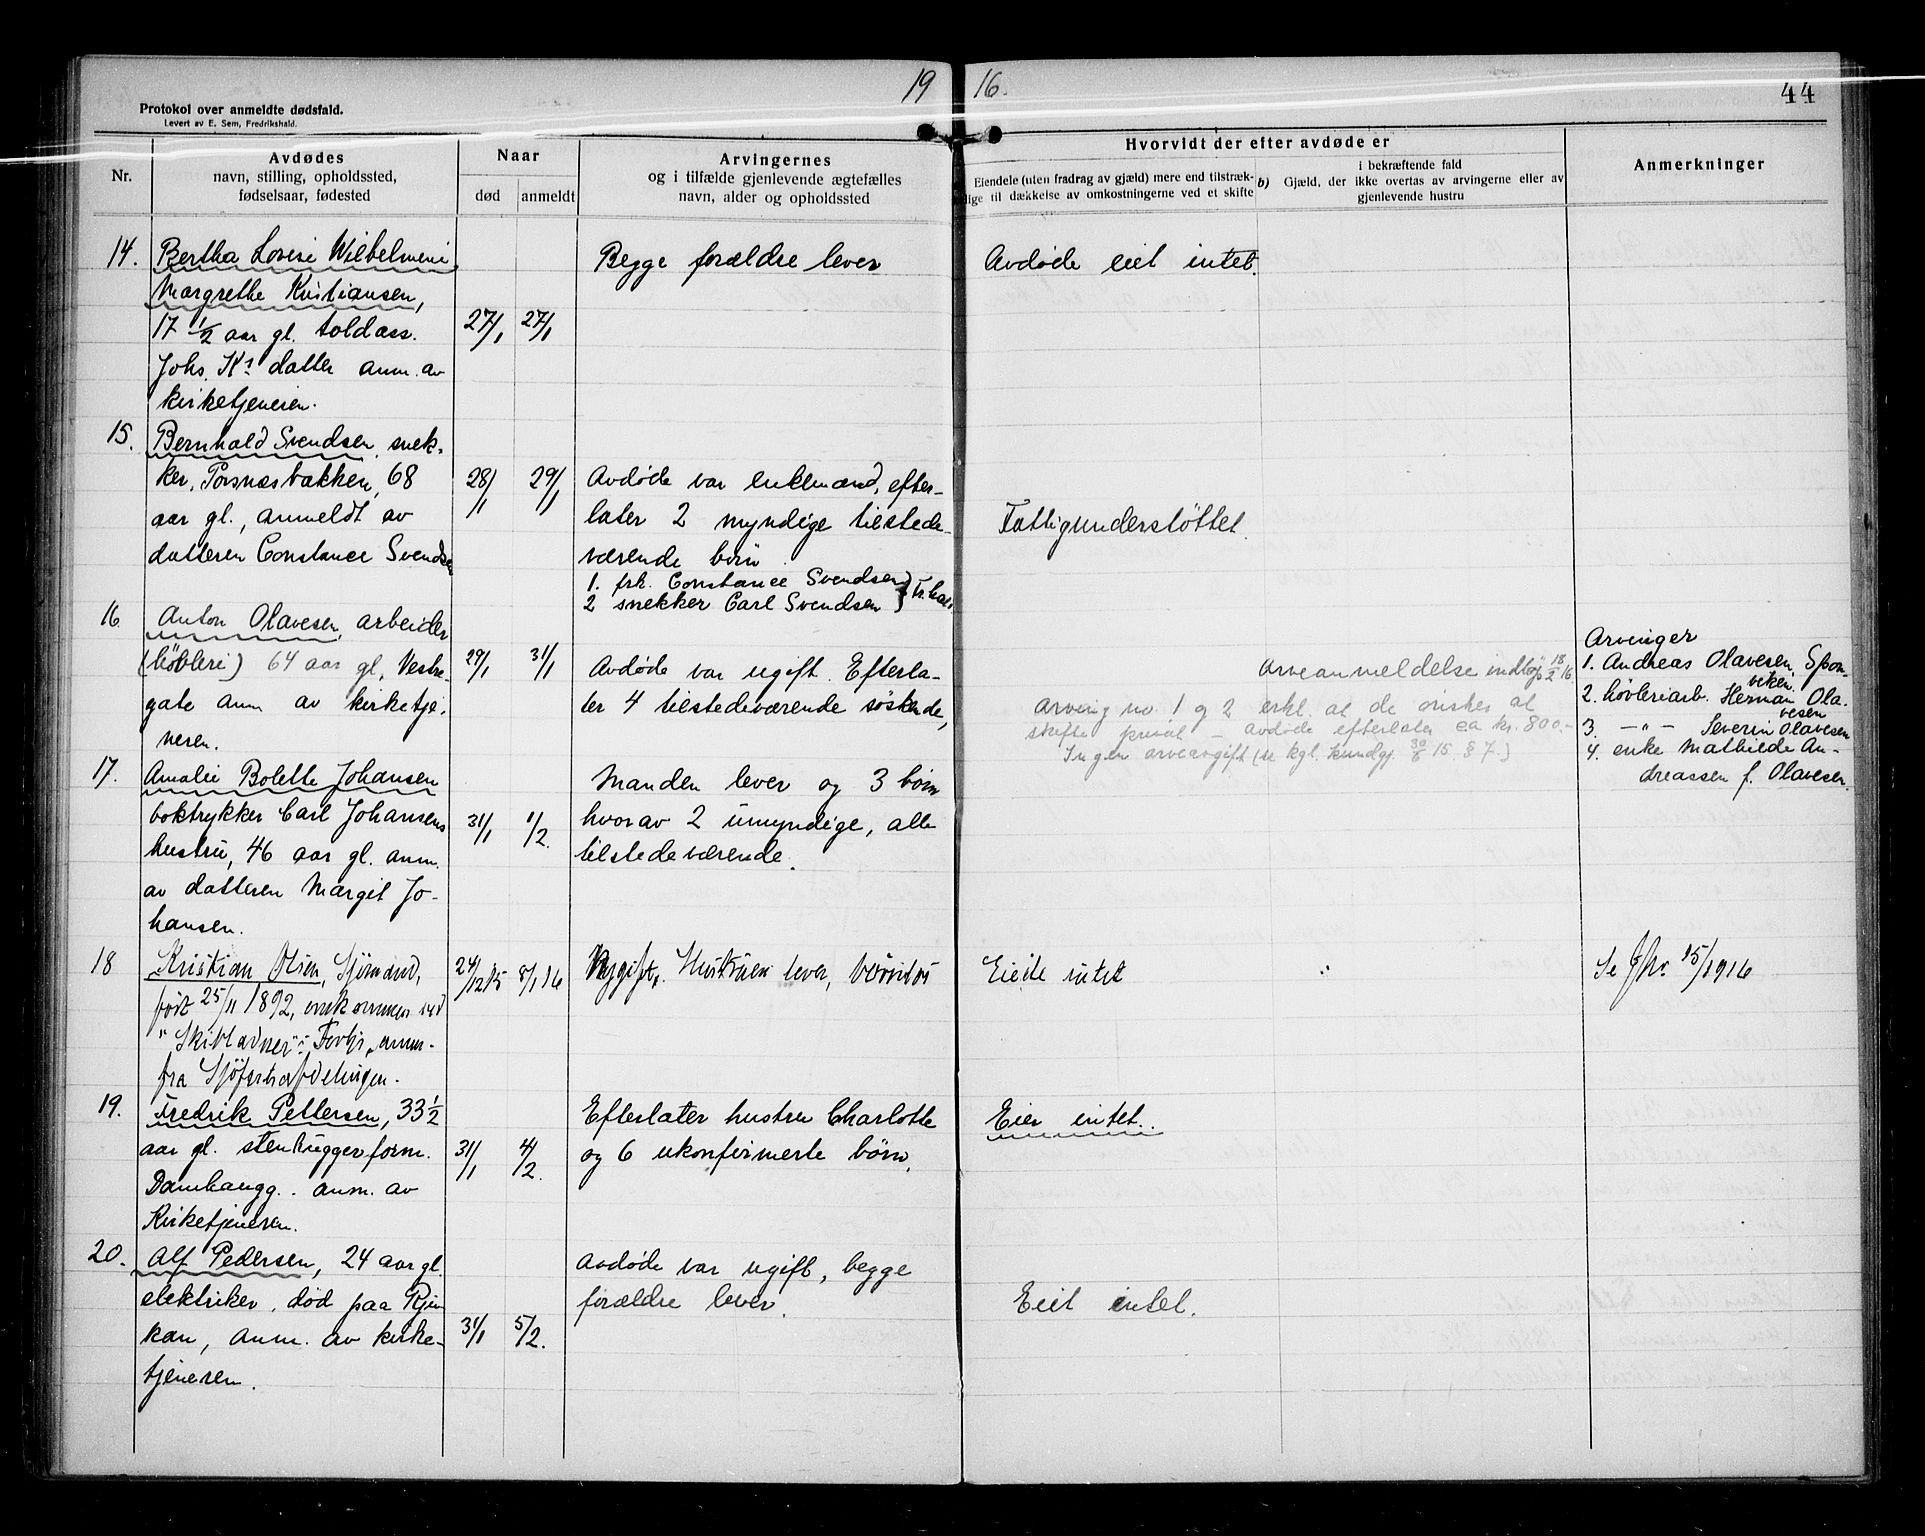 19 16.
44
Protokol over anmeldte dødsfald.
Levert av E. Sem, Fredrikshald.
Nr.
Avdødes
navn, stilling, opholdssted,
fødselsaar, fødested
Naar
død
anmeldt
Arvingernes
og i tilfælde gjenlevende ægtefælles
navn, alder og opholdssted
Hvorvidt der efter avdøde er
Eiendele (uten fradrag av gjæld) mere end tilstræk-
lige til dækkelse av omkostningerne ved et skifte
b)
i bekræftende fald
Gjæld, der ikke overtas av arvingerne eller av
gjenlevende hustru
Anmerkninger
14.
Bertha Lovise Wilhelmine
Margrethe Kristiansen,
17 ½ aar gl. toldass.
Johs. Ks datter anm. av
kirketjeneren.
27/1
27/1
Begge forældre lever
Avdøde eiet intet.
15.
Bernhald Svendsen, snek-
ker, Porsnesbakken, 68
aar gl., anmeldt av
datteren Constance Svendsen
28/1
29/1
Avdøde var enkemand, efter-
later 2 myndige tilstede-
værende børn
1. frk. Constance Svendsen
2 snekker Carl Svendsen } Fr.hald
Fattigunderstøttet.
16
Anton Olavesen, arbeider
(høvleri) 64 aar gl, Vestre-
gate anm av kirketje-
neren.
29/1
31/1
Avdøde var ugift. Efterla-
ter 4 tilstedeværende søskende,
Arveanmeldelse indtog 18/2 16
Arving no. 1 og 2 erkl. at de ønsker at
skifte privat – avdøde efterlater ca kr. 800.-
Ingen arveavgift (se kgl. kundgj. 30/6 15 § 7.)
Arvinger
1. Andreas Olavesen, Spon-
viken.
2. høvleriarb. Herman Ola-
vesen
3. –"– Severin Olavesen
4. enke Mathilde An-
dreassen f. Olavesen.
17.
Amalie Bolette Johansen
boktrykker Carl Johansens
hustru, 46 aar gl. anm.
av datteren Margit Jo-
hansen.
31/1
1/2.
Manden lever og 3 børn
hvorav 2 umyndige, alle
tilstedeværende.
18
Kristian Olsen, Sjømand,
født 25/11 1892, omkommen ved
anm.
fra
24/12 15
8/1 16
Nygift. Hustruen lever, barnløs
Eiede intet
"
Se 15/1916
19.
Fredrik Pettersen, 33 ½
aar gl. stenhugger form.
Damhaugg. anm. av
Kirketjeneren.
31/1
4/2.
Efterlater hustru Charlotte
og 6 ukonfirmerte børn,
Eier intet.
20.
Alf Pedersen, 24 aar gl.
elektriker, død paa Rju-
kan, anm. av kirke-
tjeneren.
31/1
5/2.
Avdøde var ugift, begge
forældre lever.
Eiet intet.